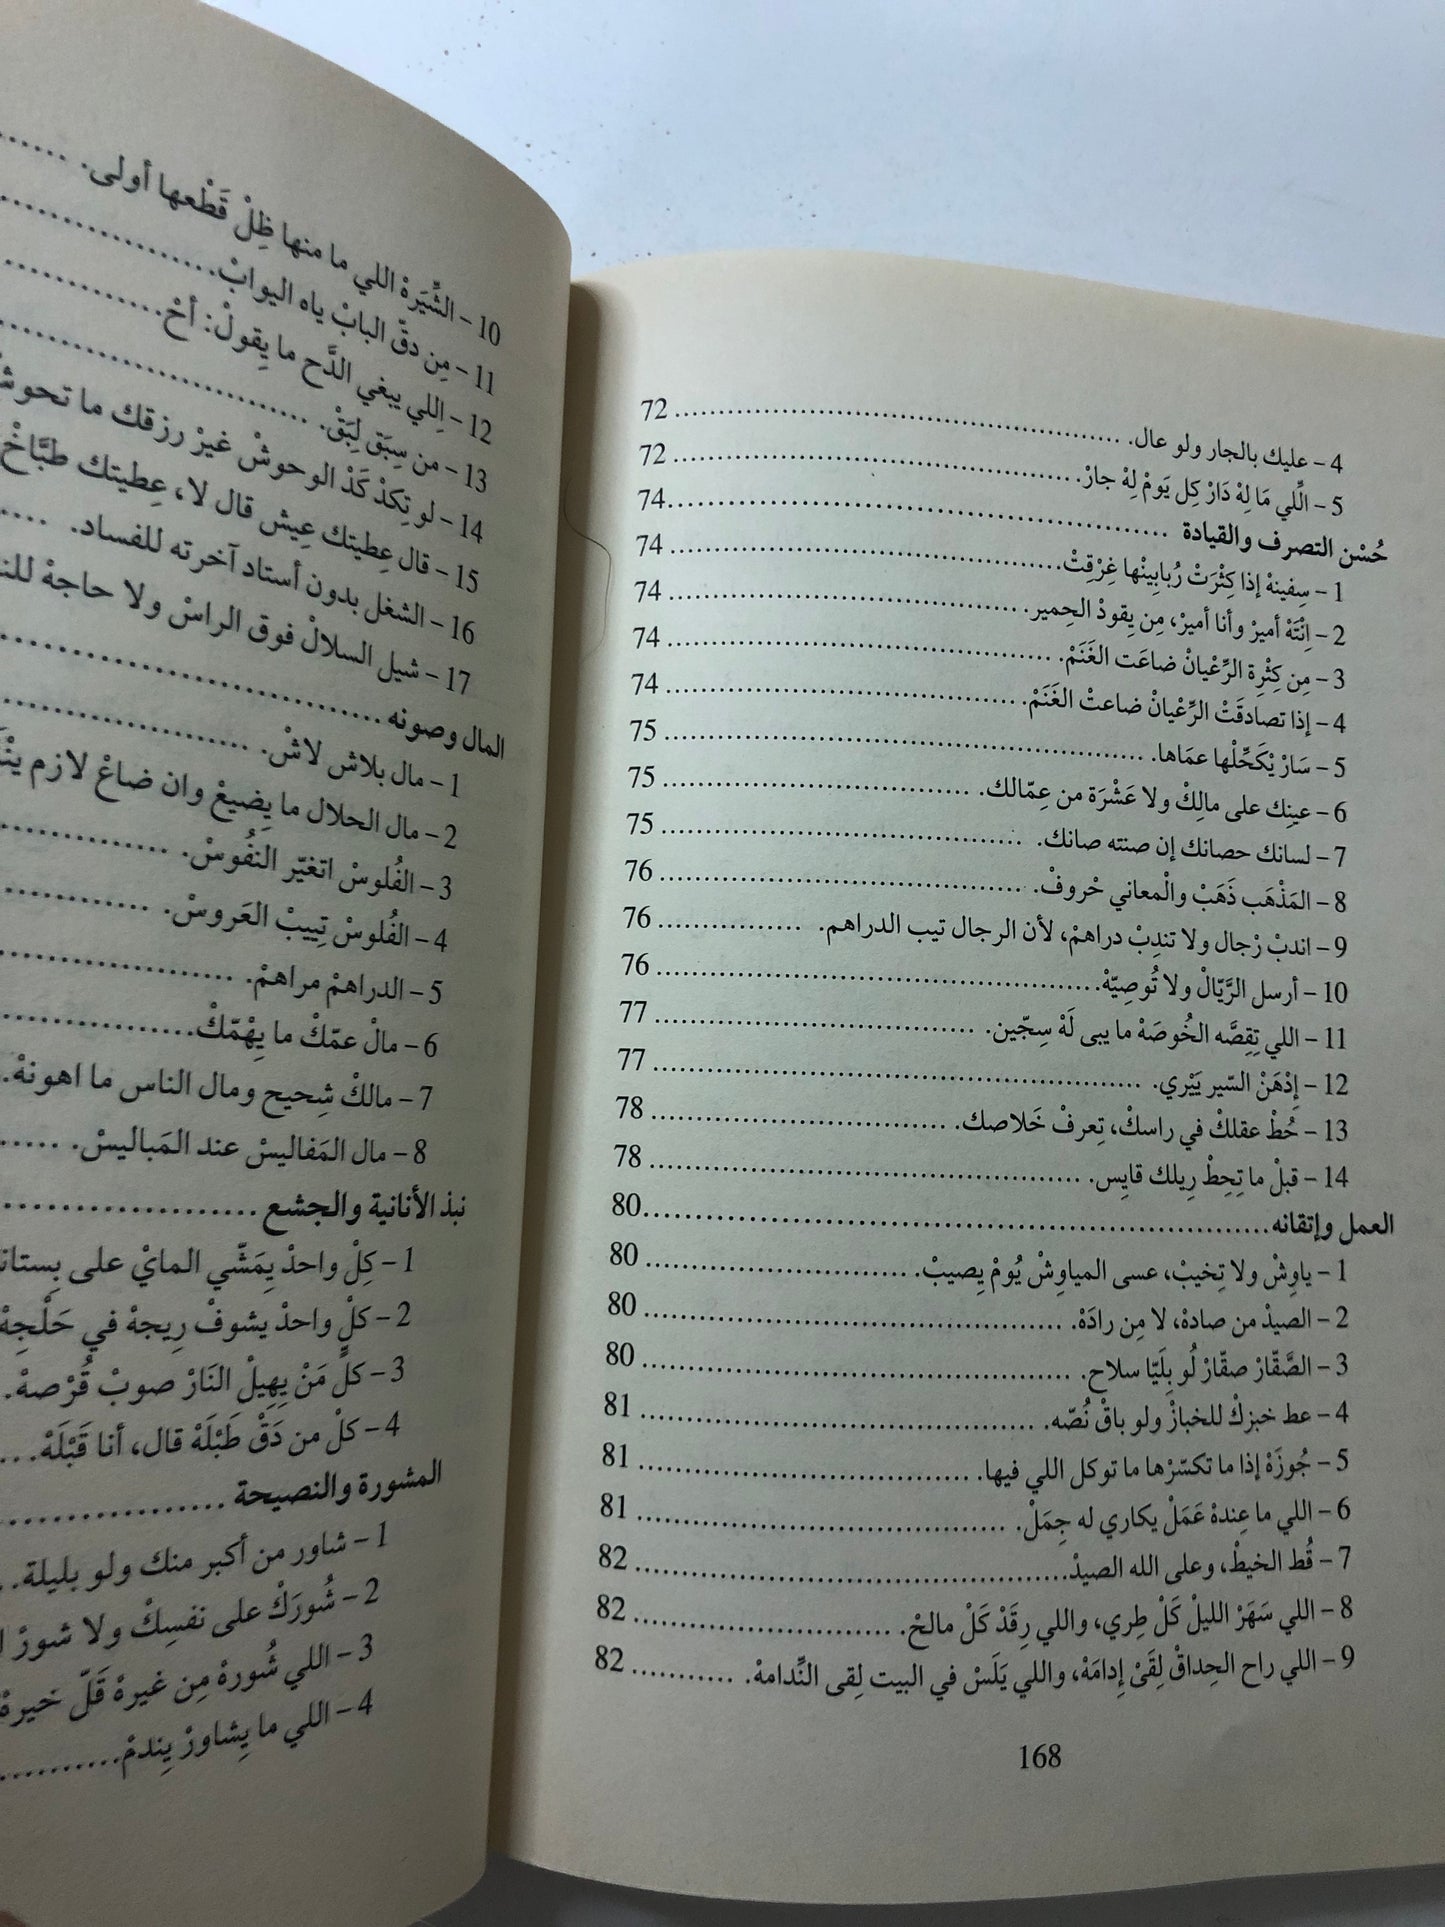 4 – عليك بالجار ولو عال. 72
5 – الِّلي مَا لِهْ دَارْ كِل يَومْ لِهْ جارْ. 72
حُسْن التصرف والقيادة 74
1 – سِفينهْ إذا كِثْرَتْ رُبابِينْها غِرْقِتْ. 74
2 – اِنْتَهْ أميرْ وأنا أميرْ، مِن يِقودْ الحِمير. 74
3 – مِن كِثْرِة الرِّعْيانْ ضاعَت الغَنَمْ. 74
4 – إذا تصادقَتْ الرِّعْيانْ ضاعتْ الغَنَمْ. 74
5 – سَارْ يْكَحِّلْها عمَاها. 75
6 – عينِك على مالِكْ ولا عَشْرَة من عِمّالك. 75
7 – لسانك حصانك إن صنته صانك. 75
8 – المَذْهَب ذَهَبْ والْمعاني حْروفْ. 76
9 – اندبْ رْجال ولا تندِبْ دراهمْ، لأن الرجال تيب الدراهم. 76
10 – أرسل الرَّيّالْ ولا تُوصِيّهْ. 76
11 – اللي تِقِصَّه الخُوصَهْ ما يبى لَهْ سِجّين. 77
12 – إِدْهَنْ السّير يَيْري. 77
13 – حُطْ عقلكْ في راسكْ، تِعرفْ خَلاصك. 78
14 – قبلْ ما تِحِطْ رِيلك قايِس. 78
العمل وإتقانه 80
1 – ياوِشْ ولا تِخيبْ، عسى المياوِشْ يُومْ يِصيبْ. 80
2 – الصيدْ من صادهْ، لا مِن رادَهْ. 80
3 – الصَّقّارْ صقّارْ لُو بِلَيّا سلاح. 80
4 – عط خبزكْ للخبازْ ولو باقْ نُصّه. 81
5 – جُوزَهْ إذا ما تكسّرْها ما توكل اللي فيها. 81
6 – اللي ما عِندهْ عَمَلْ يكاري له جِمَلْ. 81
7 – قُط الخيطْ، وعلى الله الصيدْ. 82
8 – اللي سَهَرْ الليلْ كَلْ طِري، واللي رِقَدْ كَلْ مالحْ. 82
9 – اللي راح الحِداقْ لِقَىْ إِدامَهْ، واللي يَلَسْ في البيت لِقى النِّدامهْ. 82
168
10 – الشِّيَرهْ اللي ما منها ظِلْ قَطْعها أولى.
11 – مِن دقّ البابْ ياه اليوابْ.
12 – اِللي يبغي الدَّح ما يِقولْ: أحْ.
13 – من سِبَق لِبَقْ.
14 – لو تِكدْ كَدْ الوحوشْ غيرْ رزقك ما تحوشْ
15 – قال عِطيتك عِيش قال لا، عِطيتك طبَّاخْ
16 – الشغل بدون أستاد آخرته للفساد.
17 – شيل السلالْ فوق الراسْ ولا حاجهْ
المال وصونه
1 – مال بلاش لاشْ.
2 – مال الحلال ما يِضيعْ وان ضاعْ لازم
3 – الفُلوسْ اتغيّر النفُوسْ.
4 – الفُلوسْ تِييبْ العَروسْ.
5 – الدراهمْ مراهمْ.
6 – مالْ عمّكْ ما يِهْمّكْ.
7 – مالكْ شِحيح ومال الناس ما اهونهْ.
8 – مال المَفاليسْ عند المَباليسْ.
نبذ الأنانية والجشع
1 – كِلْ واحدْ يِمَشّي المايْ على
2 – كلٍ واحدْ يشوفْ رِيجهْ في حَلْجِهْ
3 – كلْ مَنْ يِهِيلِ النَارْ صوبْ قُرْصهْ.
4 – كلْ من دَقْ طَبْلَهْ قال، أنا قَبْلَهْ.
المشورة والنصيحة
1 – شاور من أكبر منك ولو بليلة.
2 – شُورَكْ على نفسِكْ ولا شورْ
3 – اللي شُورهْ مِن غيرهْ قَلّ خيرهْ
4 – اللي ما يِشاورْ يِندمْ.